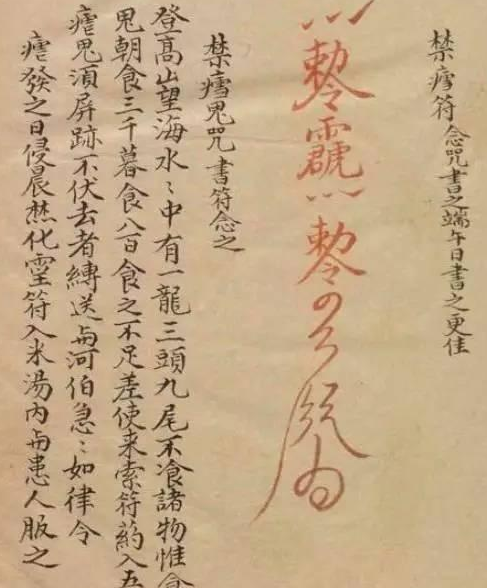 禁瘧符 念咒書之端午日書之更佳
勅令 勅令
禁瘧鬼咒書符念之
登高山望海水〻中有一龍三頭九尾不飡諸物惟食
鬼朝食三千暮食八百食之不足差使来索符葯入五
瘧鬼須屏跡不伏去者縛送与河伯急〻如律令
瘧發之日侵晨焚化靈符入米湯內与患人服之